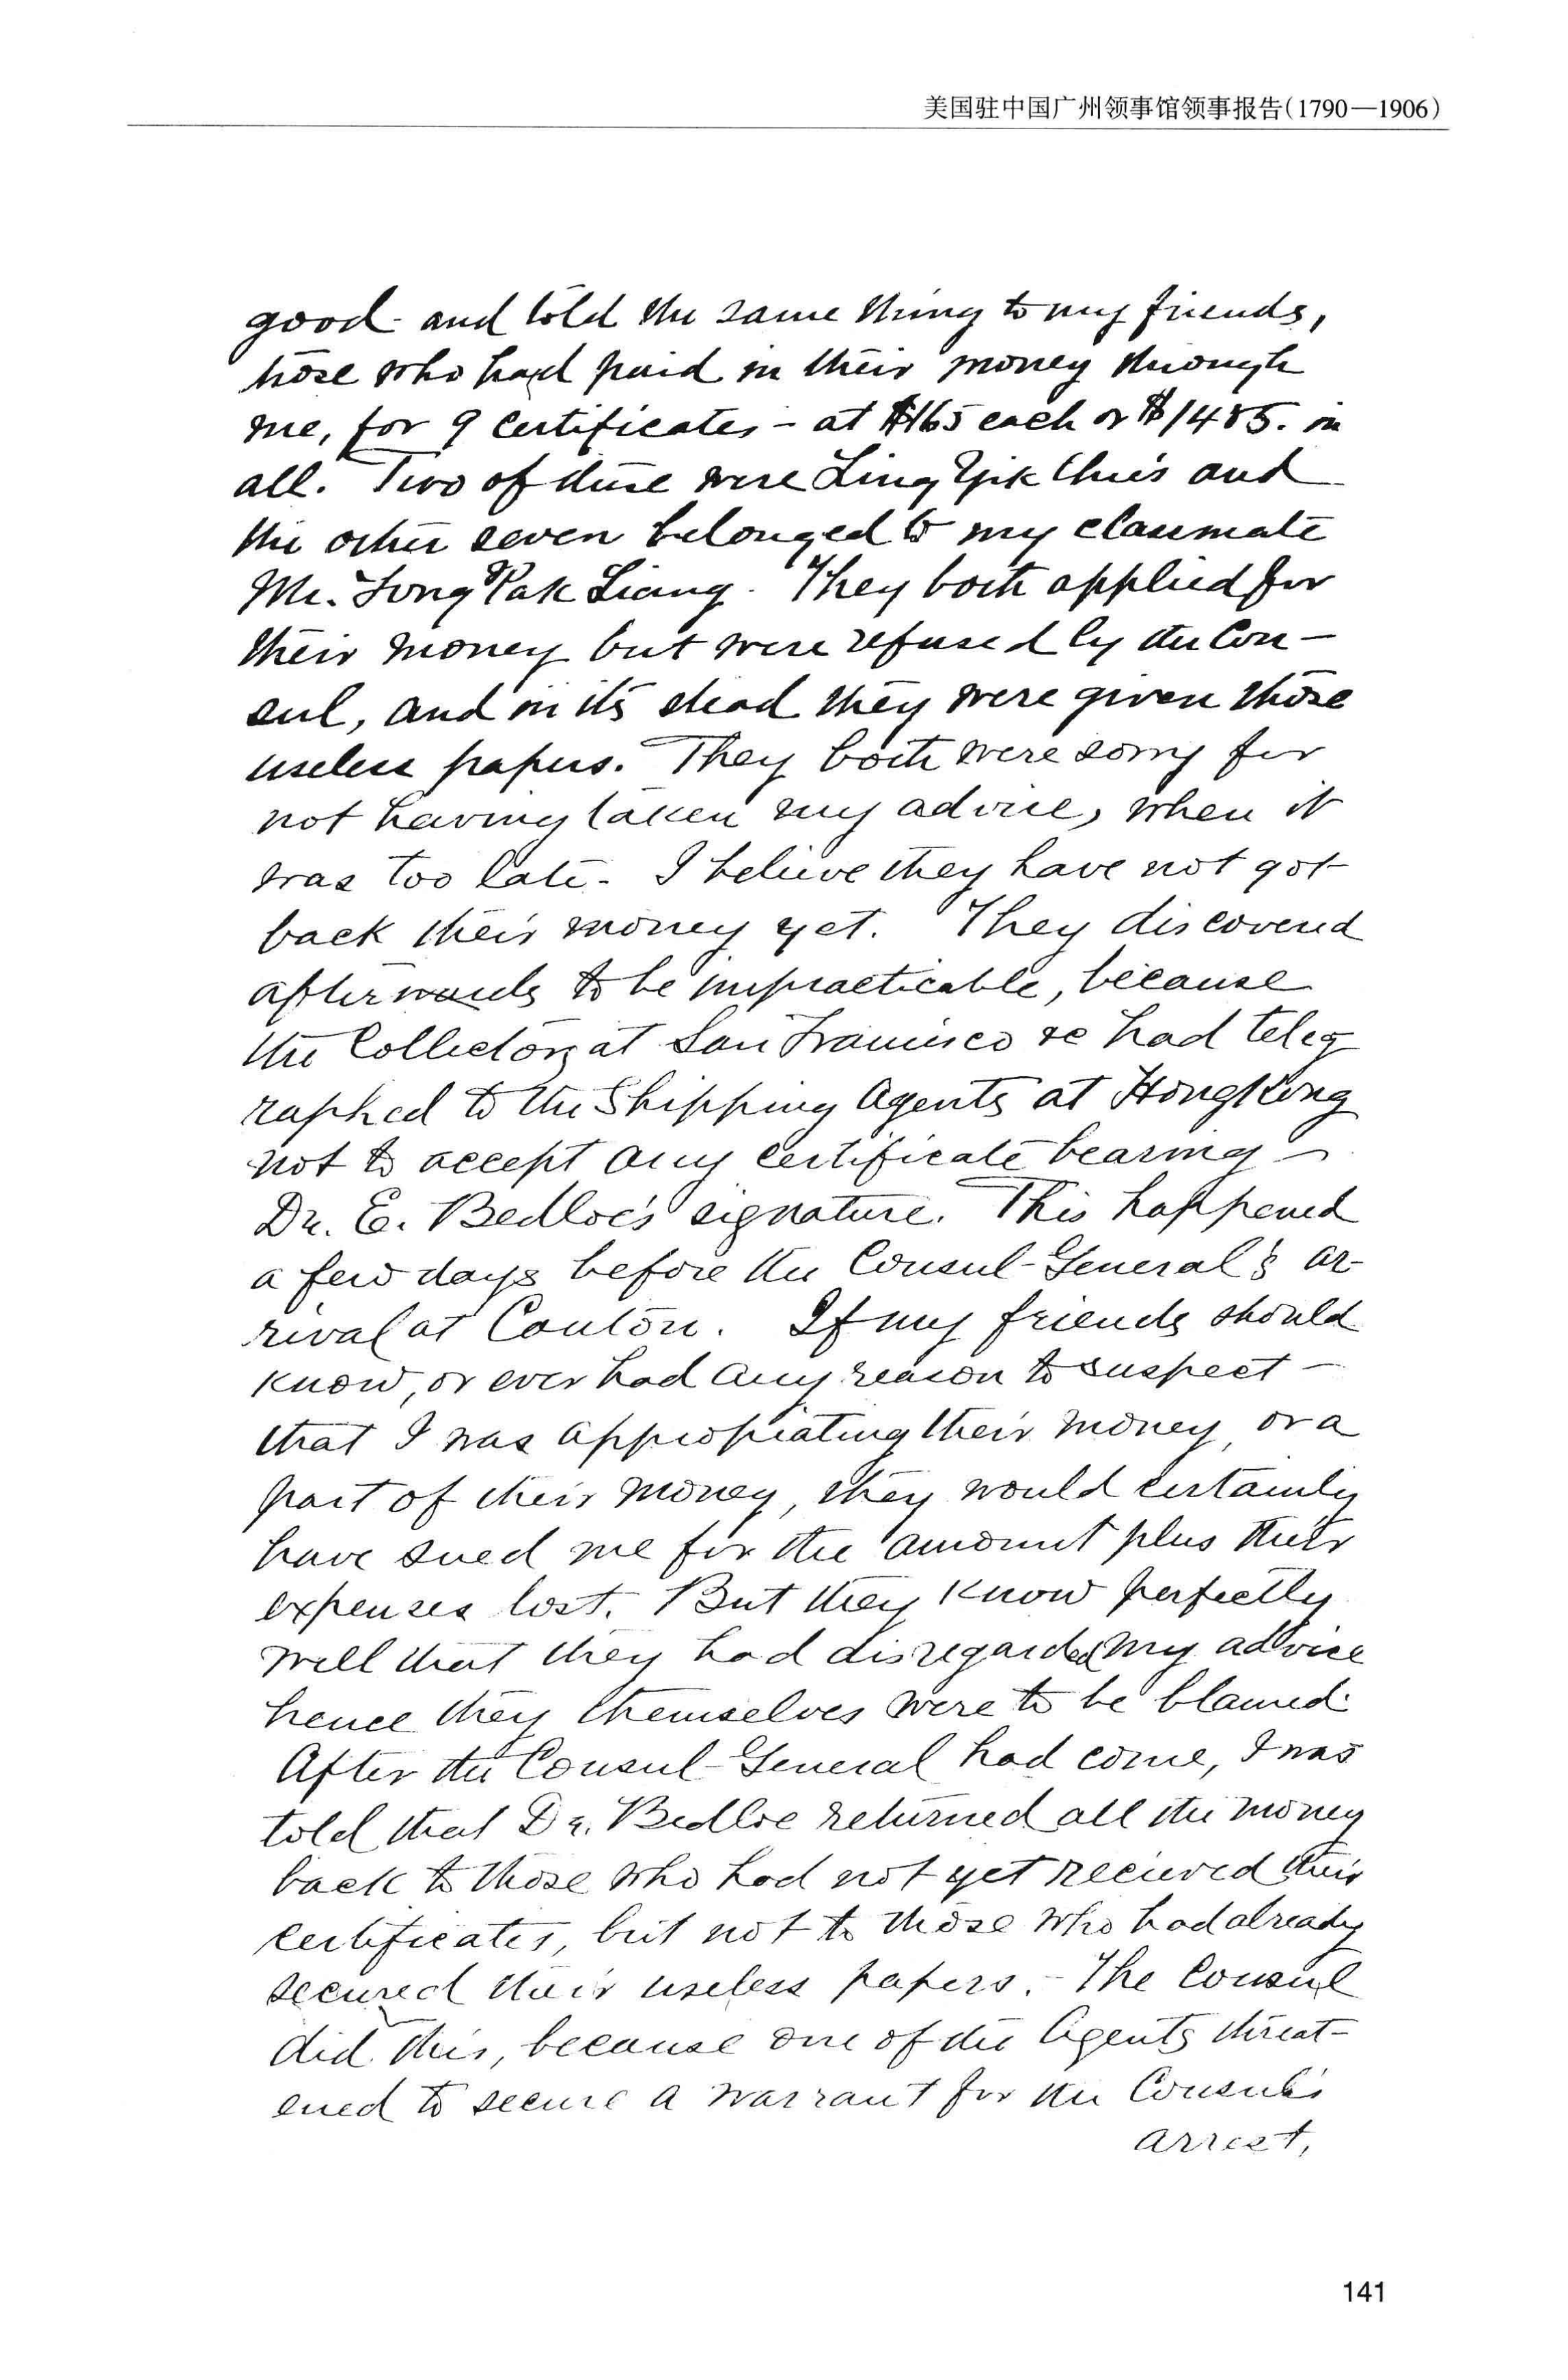 美国驻中国广州领事馆领事报告(1790—1906)
good and told the same thing to my friends,
those who had paid in their money through
me, for 9 certificates - at $165 each or $1485. in
all. Two of these were Ling Yik Chu's and
the other seven belonged to my classmate
Mr. Tong Pak Liang. They both applied for
their money but were refused by the Con-
sul, and in its stead they were given those
useless papers. They both were sorry for
not having taken my advice, when it
was too late. I believe they have not got
back their money yet. They discovered
afterwards to be impracticable, because
the Collectors at San Francisco &c had teleg
raphed to the Shipping Agents at HongKong
not to accept any certificate bearing
Dr. E. Bedloe's signature. This happened
a few days before the Consul-General's ar-
rival at Canton. If my friends should
know, or ever had any reason to suspect
that I was appropiating their money, or a
part of their money, they would certainly
have sued me for the amount plus their
expenses lost. But they know perfectly
well that they had disregarded my advice
hence they themselves were to be blamed.
After the Consul-General had come, I was
told that Dr. Bedloe returned all the money
back to those who had not yet received their
certificates, but not to those who had already
secured their useless papers. - The Consul
did this, because one of the Agents threat-
ened to secure a warrant for the Consul's
arrest,
141